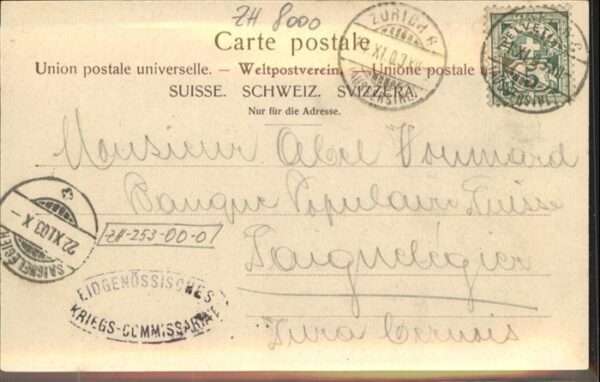 ZH 8000
Carte postale
Union postale universelle. — Weltpostverein. — Unione postale u
SUISSE. SCHWEIZ. SVIZZERA.
Nur für die Adresse.
ZÜRICH
XI.
AUSSERSIHL
AUSSERSIHL
Monsieur Abel Vuumard
Banque Populaire Suisse
Saignelégier
Jura Bernois
SAIGNELEGIER
22.XI.03.X-
ZH-253-00-01
EIDGENÖSSISCHES
KRIEGS-COMMISSARIAT